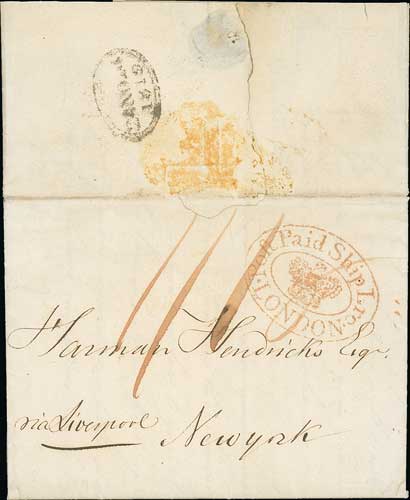 Post Paid Ship Lre
LONDON
Harman Hendricks Esqr
via Liverpool
Newyork